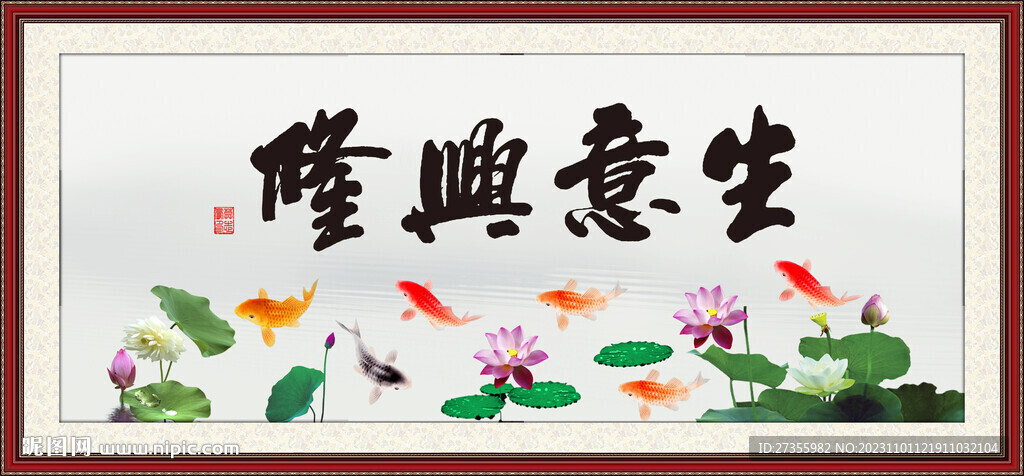 生意興隆
昵图网 www.nipic.com
ID:27355982 NO:20231101121911032104